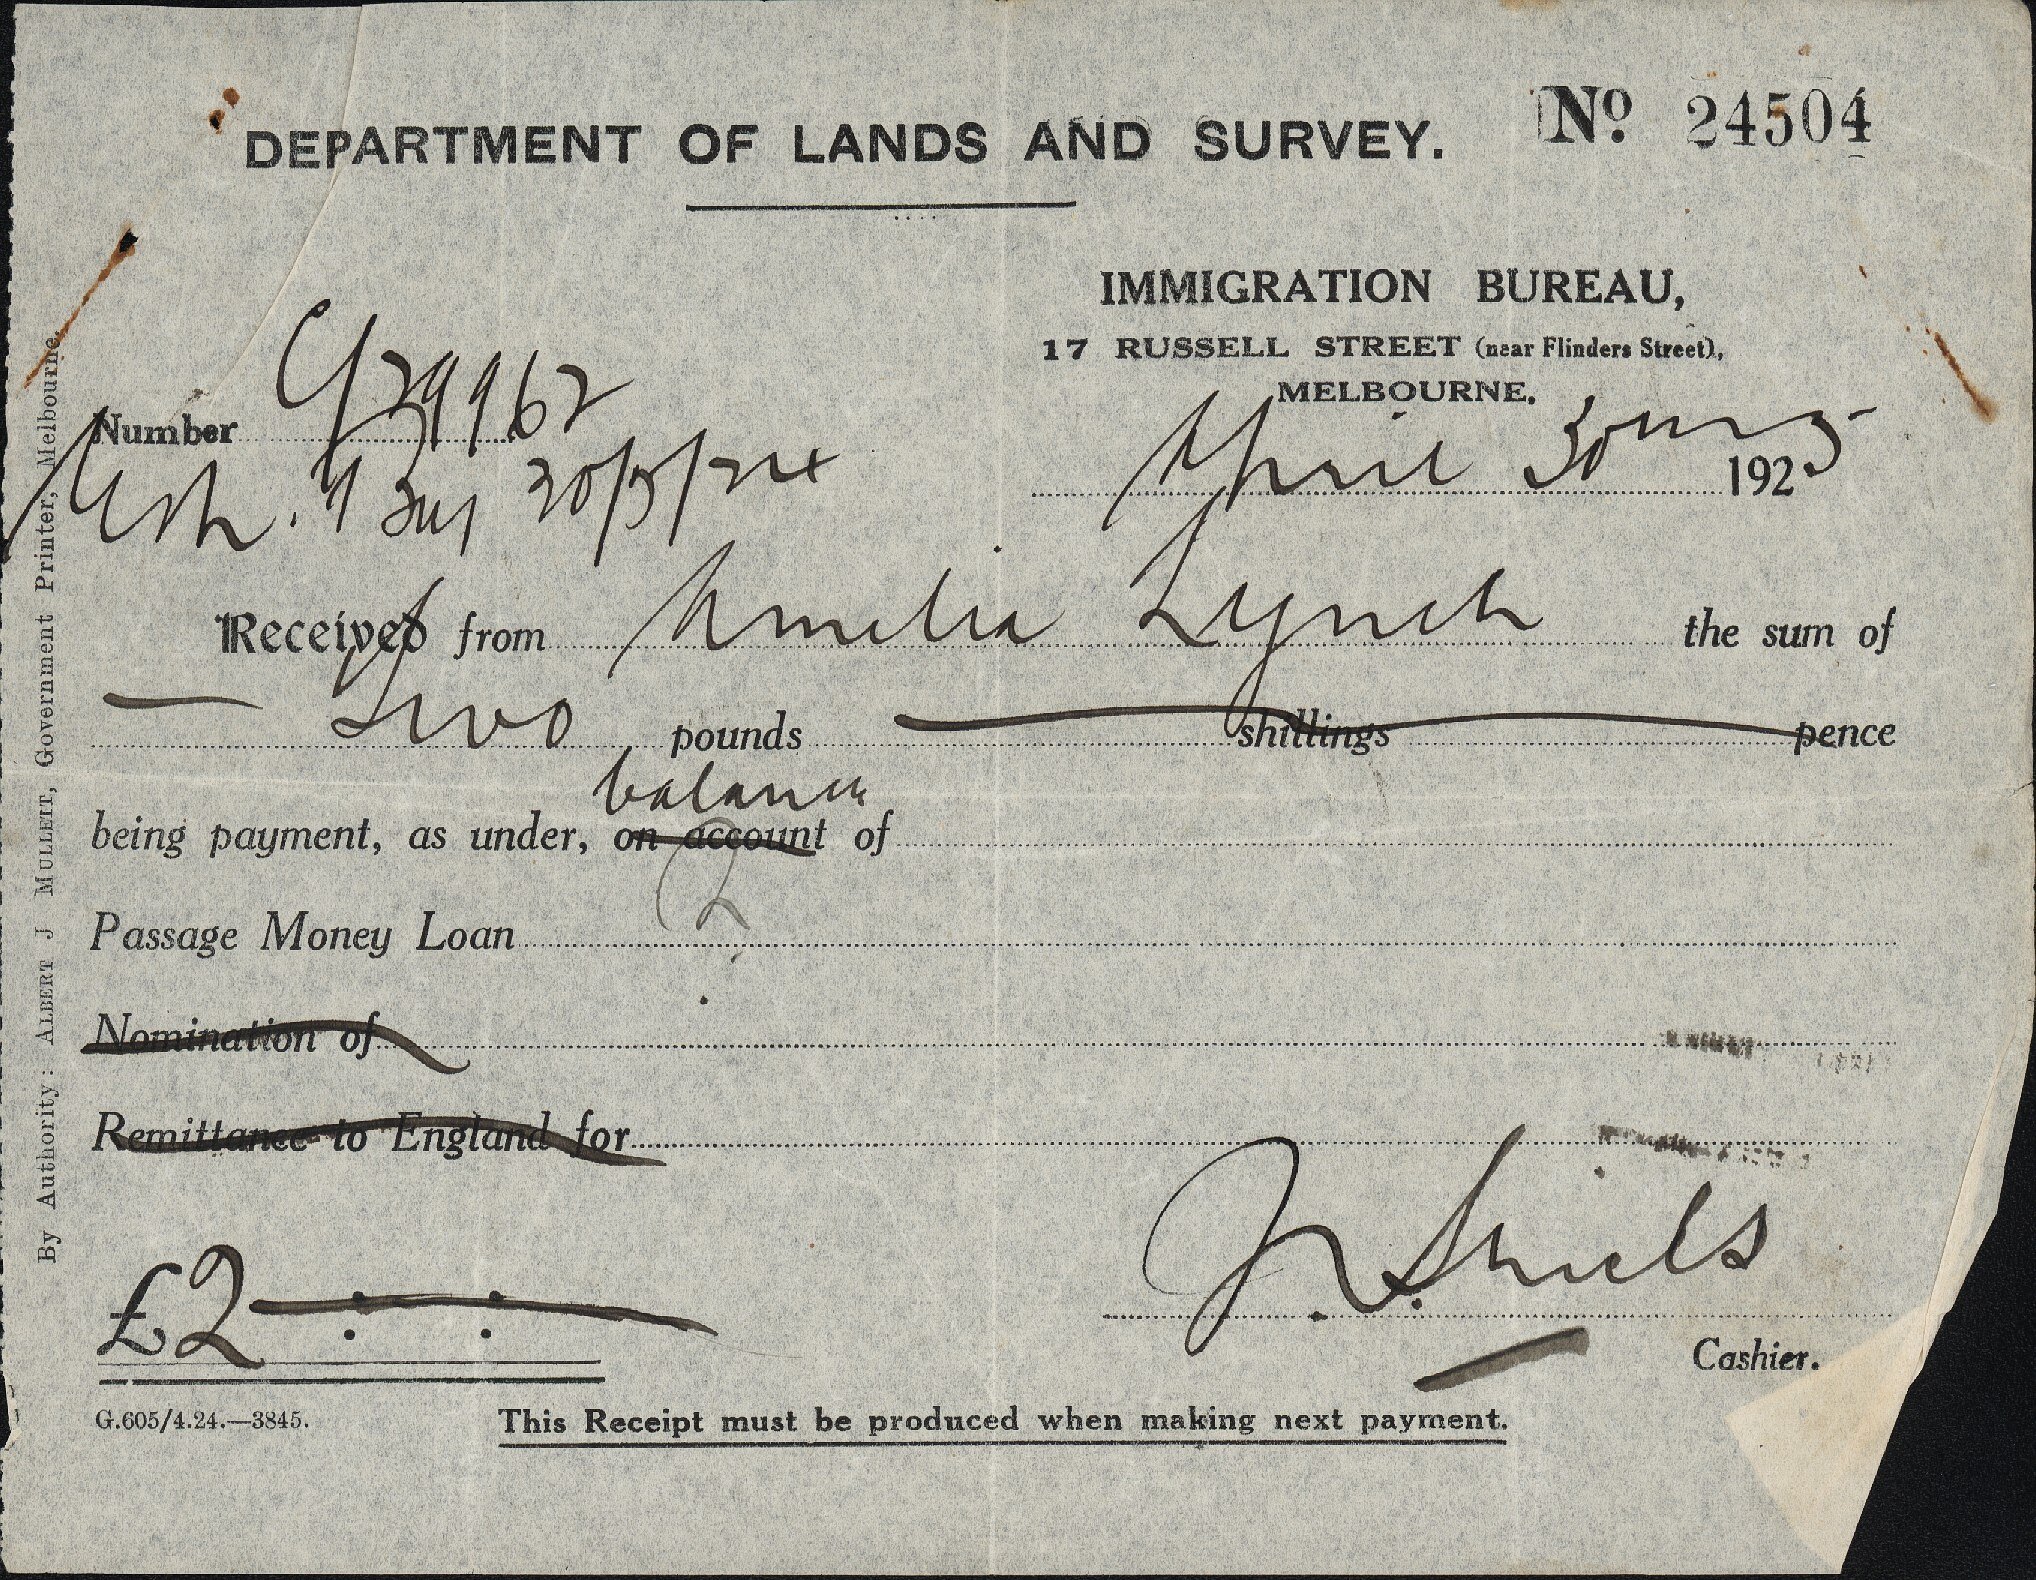 No. 24504
DEPARTMENT OF LANDS AND SURVEY.
IMMIGRATION BUREAU,
17 RUSSELL STREET (near Flinders Street),
MELBOURNE.
Number
April 30 1925
Received from Amelia Lynch the sum of
Two pounds shillings pence
balance
being payment, as under, on account of
Passage Money Loan
Nomination of
Remittance to England for
£2 : :
J. Shiels
Cashier.
G.605/4.24.—3845.
This Receipt must be produced when making next payment.
By Authority: ALBERT J MULLETT, Government Printer, Melbourne.